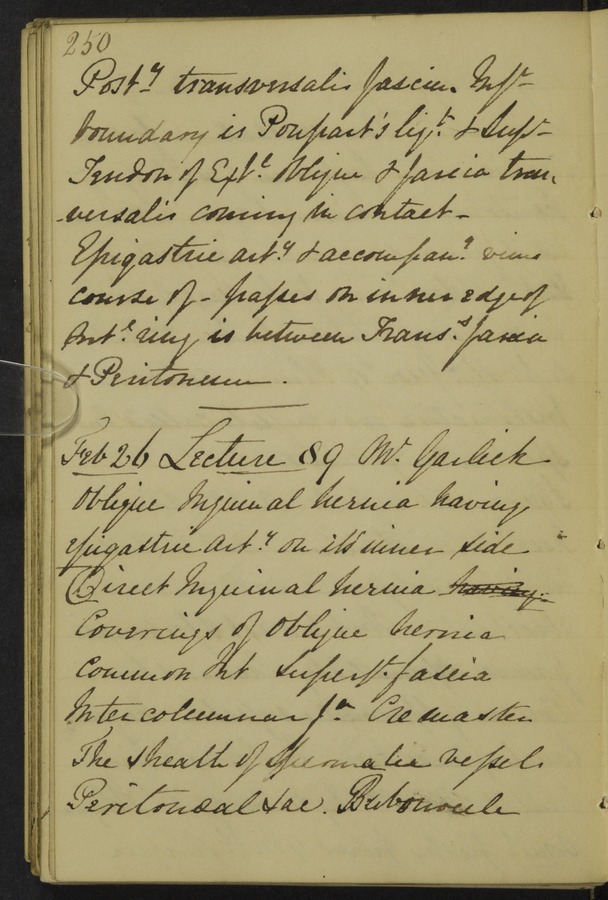 250
Post.y transversalis fascia. Inf.r
boundary is Poupart's lig.t & Sup.r
Tendon of Ext.l Oblique & fascia tran
-versalis coming in contact -
Epigastric art.y & accompan.g veins
course of - passes on inner edge of
Int.l ring is between Trans.s fascia
& Peritoneum.
Feb 26 Lecture 89 Mr. Garlick
Oblique Inguinal hernia having
epigastric art.y on its inner side
Direct Inguinal hernia having
Coverings of Oblique hernia
Common Int superf. fascia
Intercolumnar f.a Cremaster
The sheath of spermatic vessels
Peritonæal sac. Bubonocele